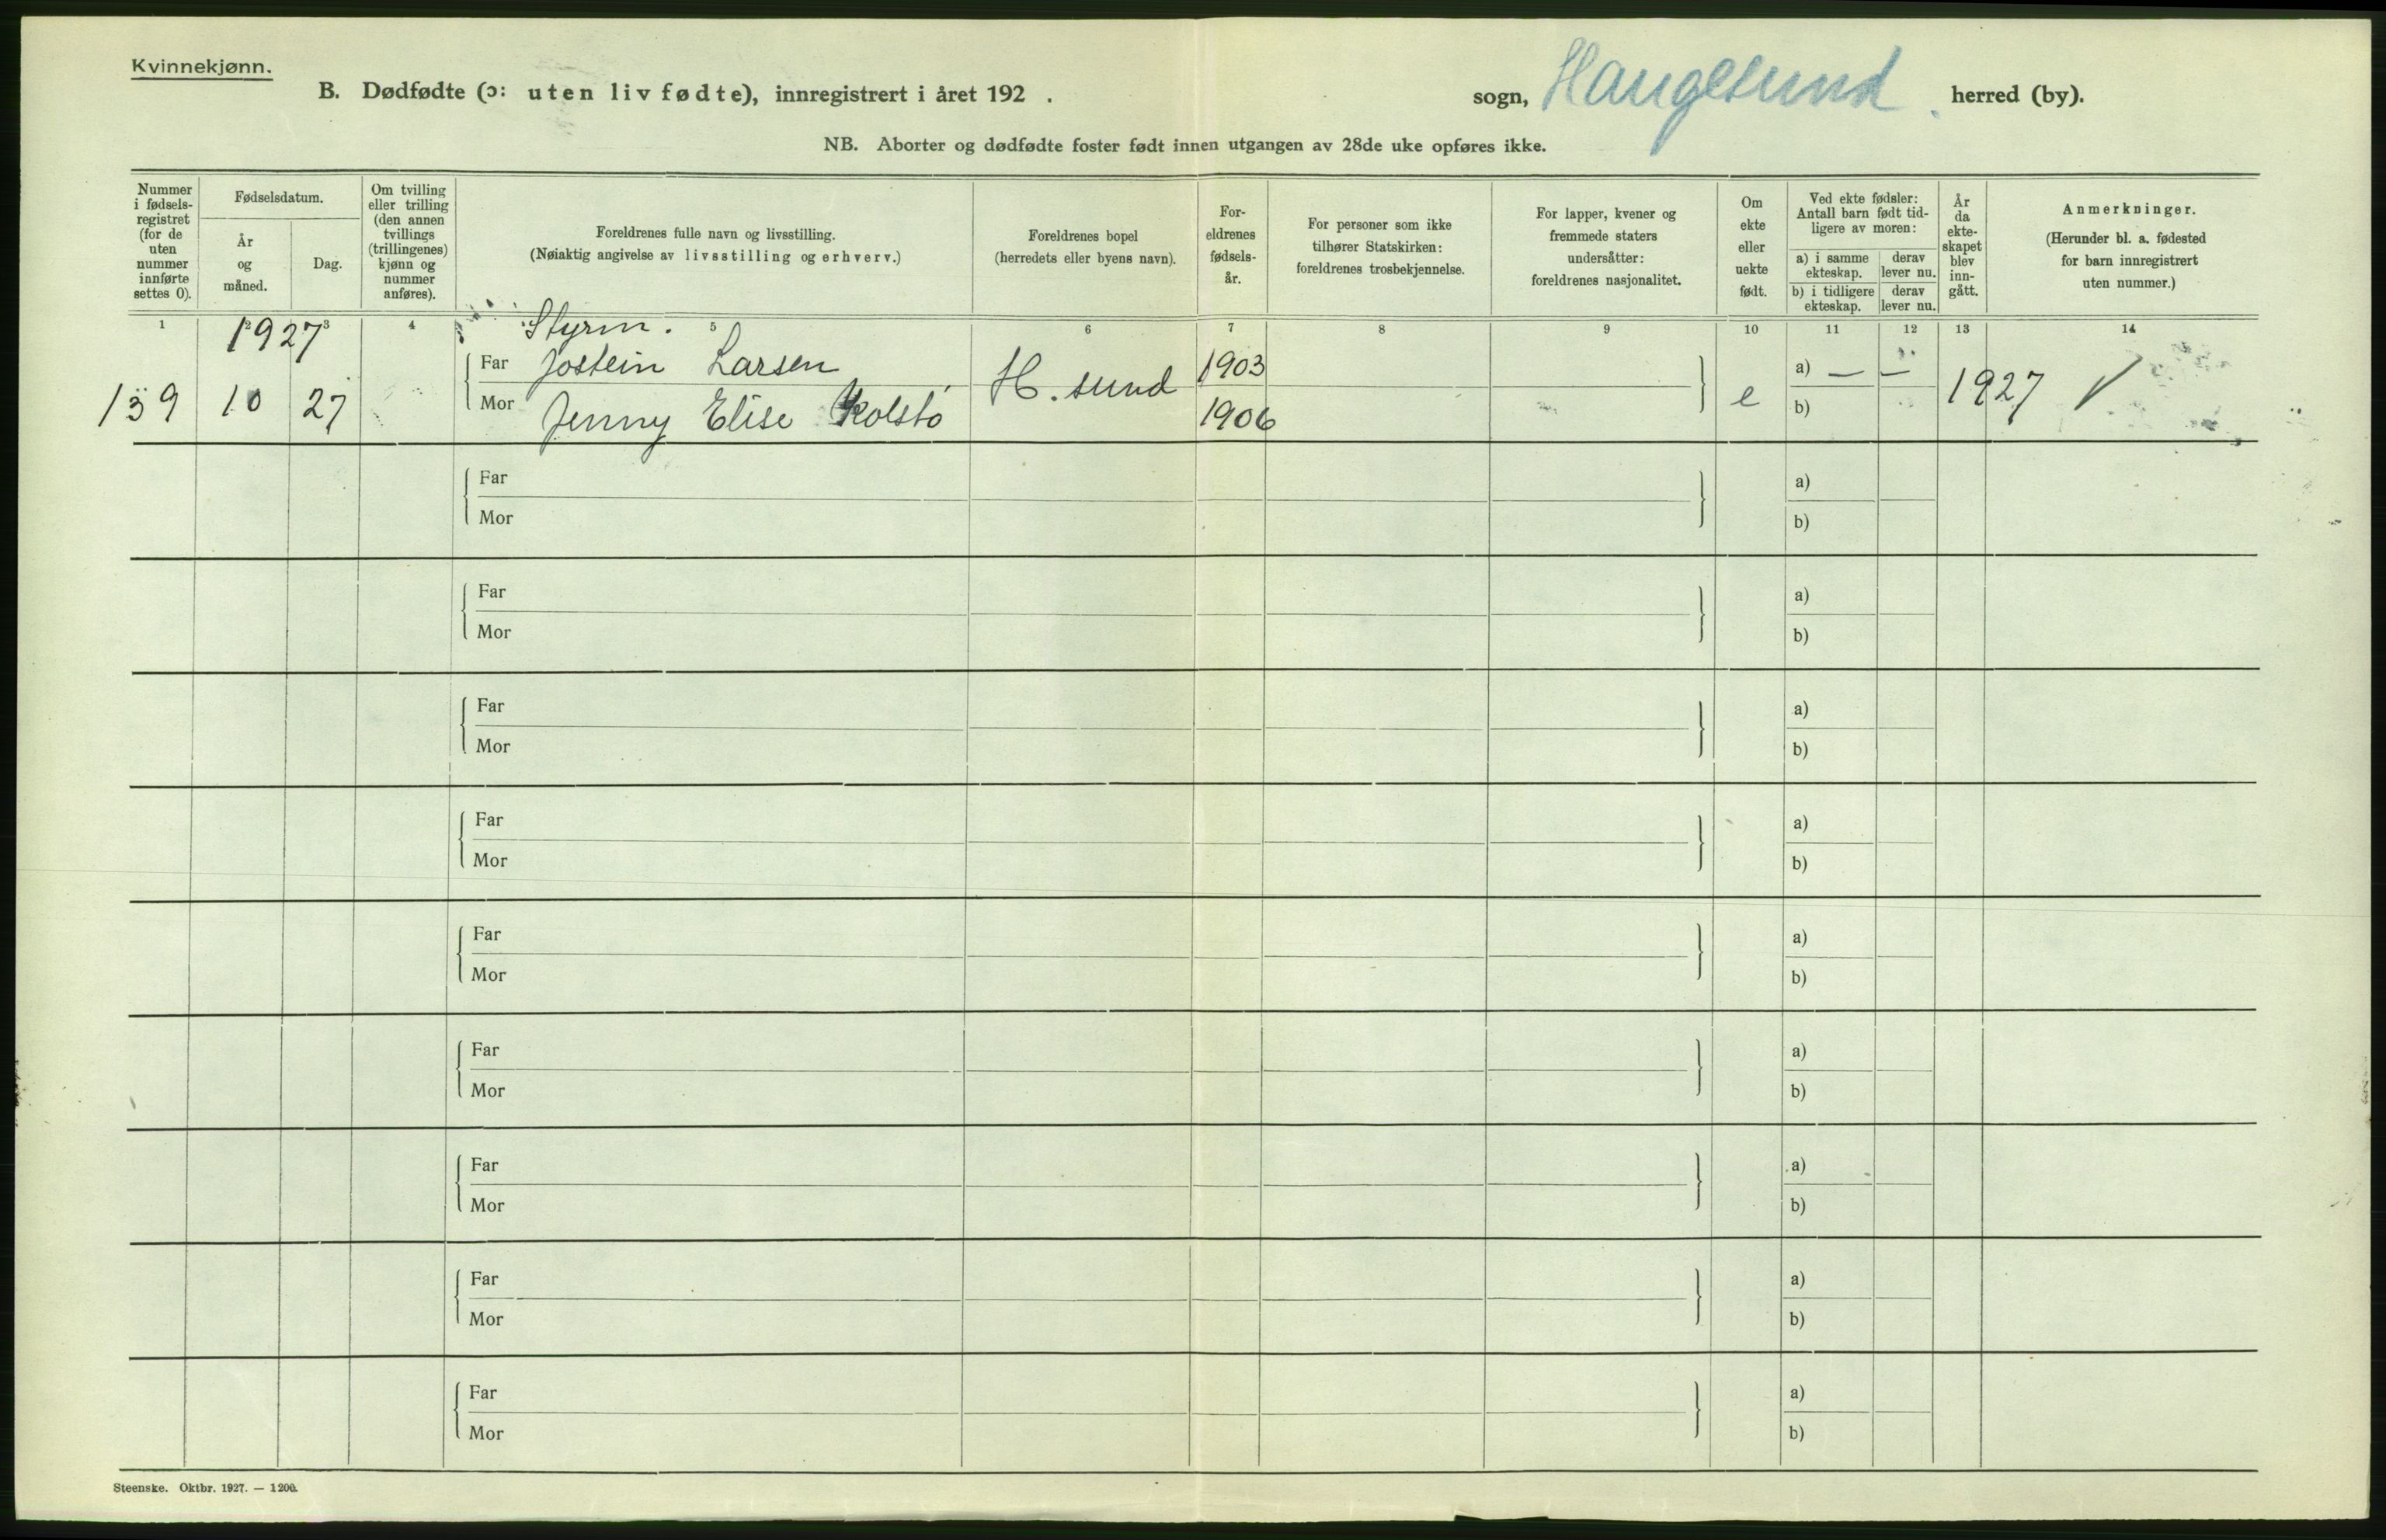 Kvinnekjønn.
B. Dødfødte (ɔ: uten liv fødte), innregistrert i året 192 .
sogn, Haugesund herred (by).
NB. Aborter og dødfødte foster født innen utgangen av 28de uke opføres ikke.
Nummer i fødsels-registret (for de uten nummer innførte settes 0).
Fødselsdatum.
År og måned.
Dag.
Om tvilling eller trilling (den annen tvillings (trillingenes) kjønn og nummer anføres).
Foreldrenes fulle navn og livsstilling.
(Nøiaktig angivelse av livsstilling og erhverv.)
Foreldrenes bopel
(herredets eller byens navn).
For-eldrenes fødsels-år.
For personer som ikke tilhører Statskirken: foreldrenes trosbekjennelse.
For lapper, kvener og fremmede staters undersåtter: foreldrenes nasjonalitet.
Om ekte eller uekte født.
Ved ekte fødsler: Antall barn født tid-ligere av moren:
a) i samme ekteskap.
derav lever nu.
b) i tidligere ekteskap.
derav lever nu.
År da ekte-skapet blev inn-gått.
Anmerkninger.
(Herunder bl. a. fødested for barn innregistrert uten nummer.)
1 2 3 4 5 6 7 8 9 10 11 12 13 14
1927 Styrm.
Far Jostein Larsen 1903 a) — —
139 10 27 H.sund e 1927 ✓
Mor Jenny Elise Kolstø 1906 b)
Far a)
Mor b)
Far a)
Mor b)
Far a)
Mor b)
Far a)
Mor b)
Far a)
Mor b)
Far a)
Mor b)
Far a)
Mor b)
Far a)
Mor b)
Far a)
Mor b)
Steenske. Oktbr. 1927. — 1200.